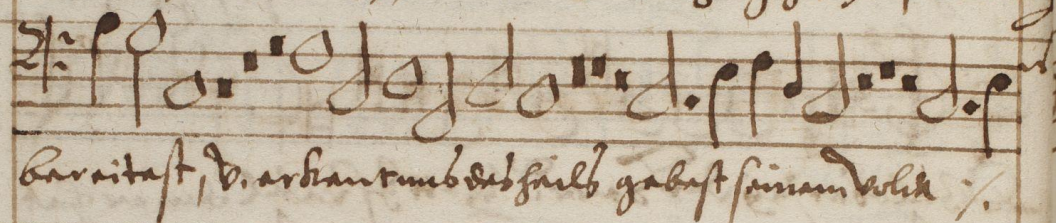 bereitest, v. erkantnus des heils gebest seinem volck ./.